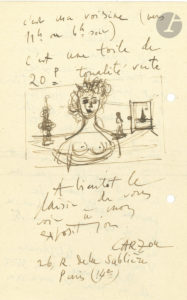 c'est ma voisine (vers
11h ou 6h soir)
c'est une toile de
20P tonalité verte
A bientôt le
plaisir de vous
voir à mon
exposition
CARZOU
26, R. de la Sablière
Paris (14e)